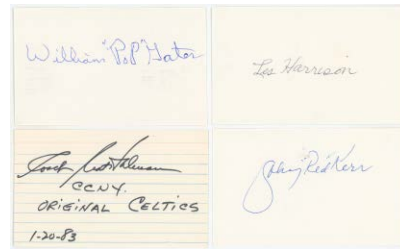 William "Pop" Gates
Les Harrison
Coach Nat Holman
CCNY
ORIGINAL CELTICS
1-20-83
Johnny "Red" Kerr